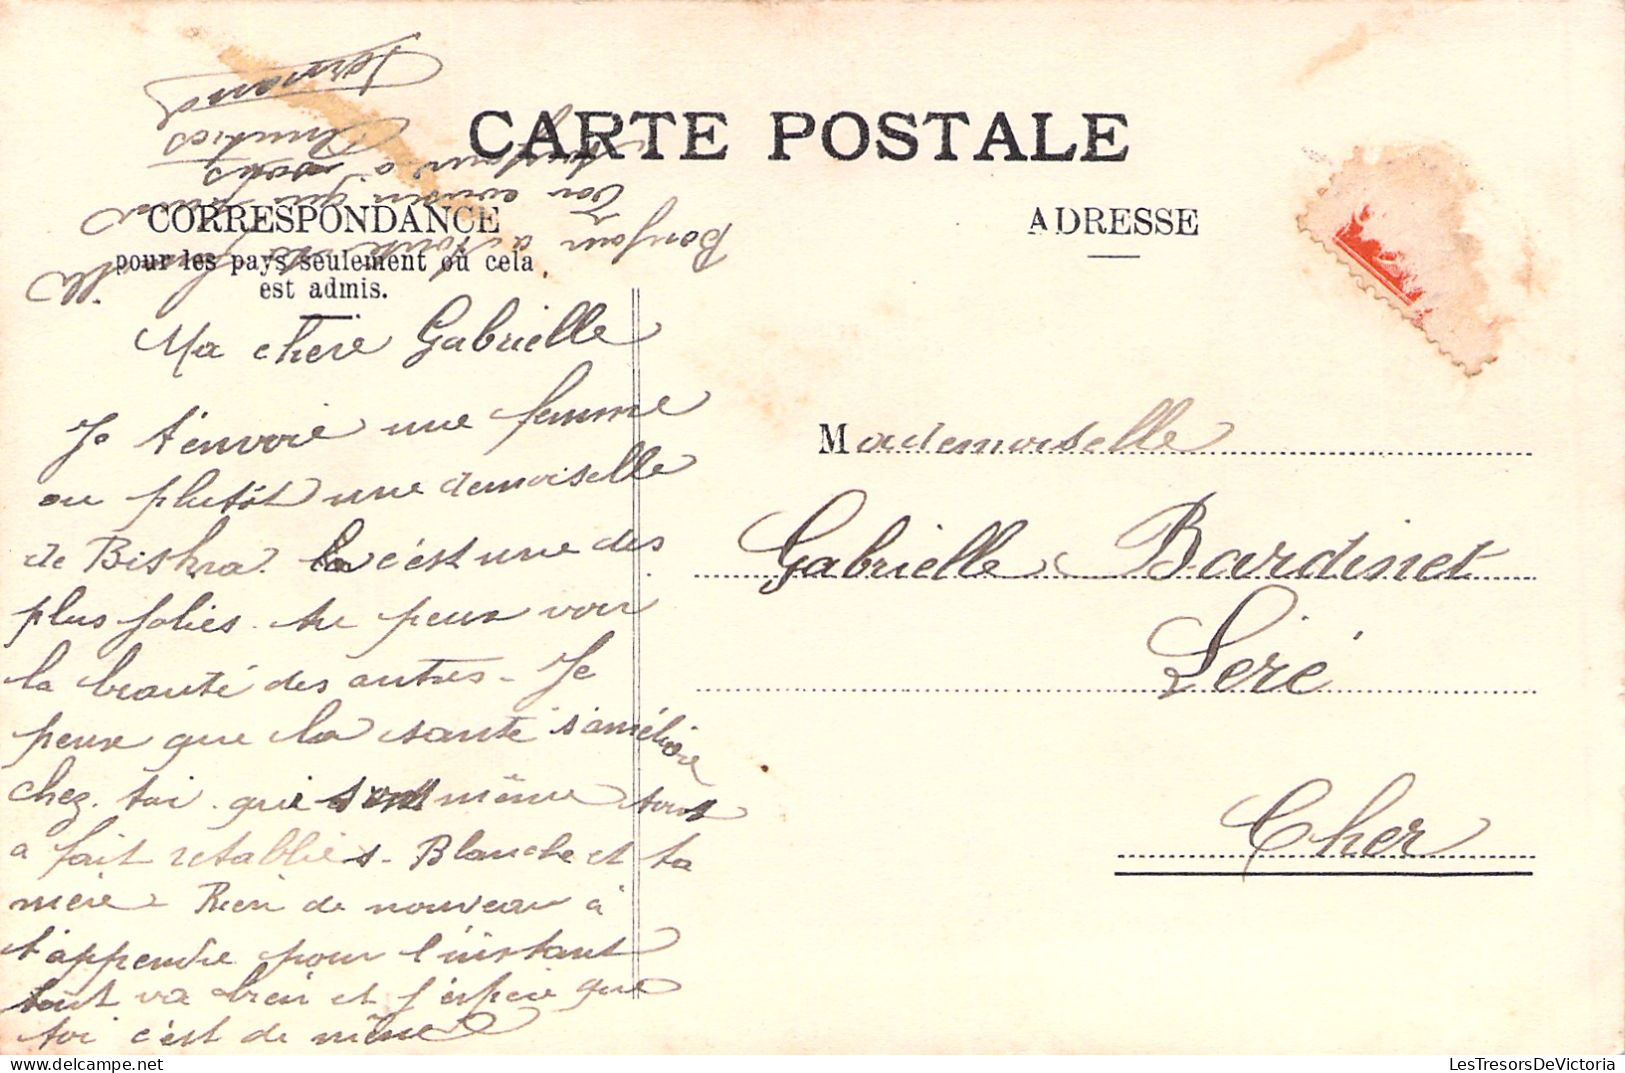 CARTE POSTALE
CORRESPONDANCE
pour les pays seulement où cela
est admis.
ADRESSE
Ma chere Gabrielle
Je t'envoie une femme
ou plutôt une demoiselle
de Biskra. c'est une des
plus jolies. tu peux voir
la beauté des autres - Je
peux que la santé s'améliore
chez toi. qui sont même tout
a fait retablies. Blanche et ta
mère. Rien de nouveau à
t'apprendre pour l'instant
tout va bien et j'espère que
toi c'est de même
Bonjour a toute la famille
Ton cousin qui pense
toujours à vous
Amitiés
Fernand
Mademoiselle
Gabrielle Bardinet
Léré
Cher
LesTresorsDeVictoria